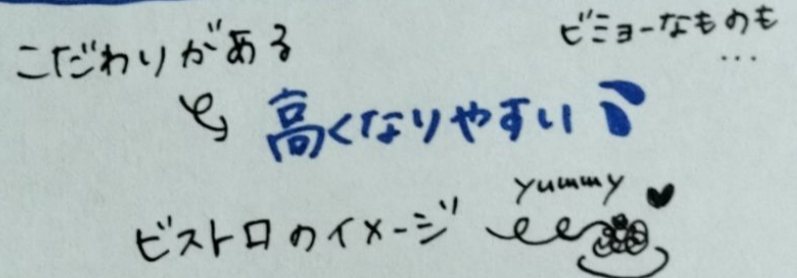 こだわりがある
ビミョーなものも
...
高くなりやすい
yummy
ビストロのイメージ